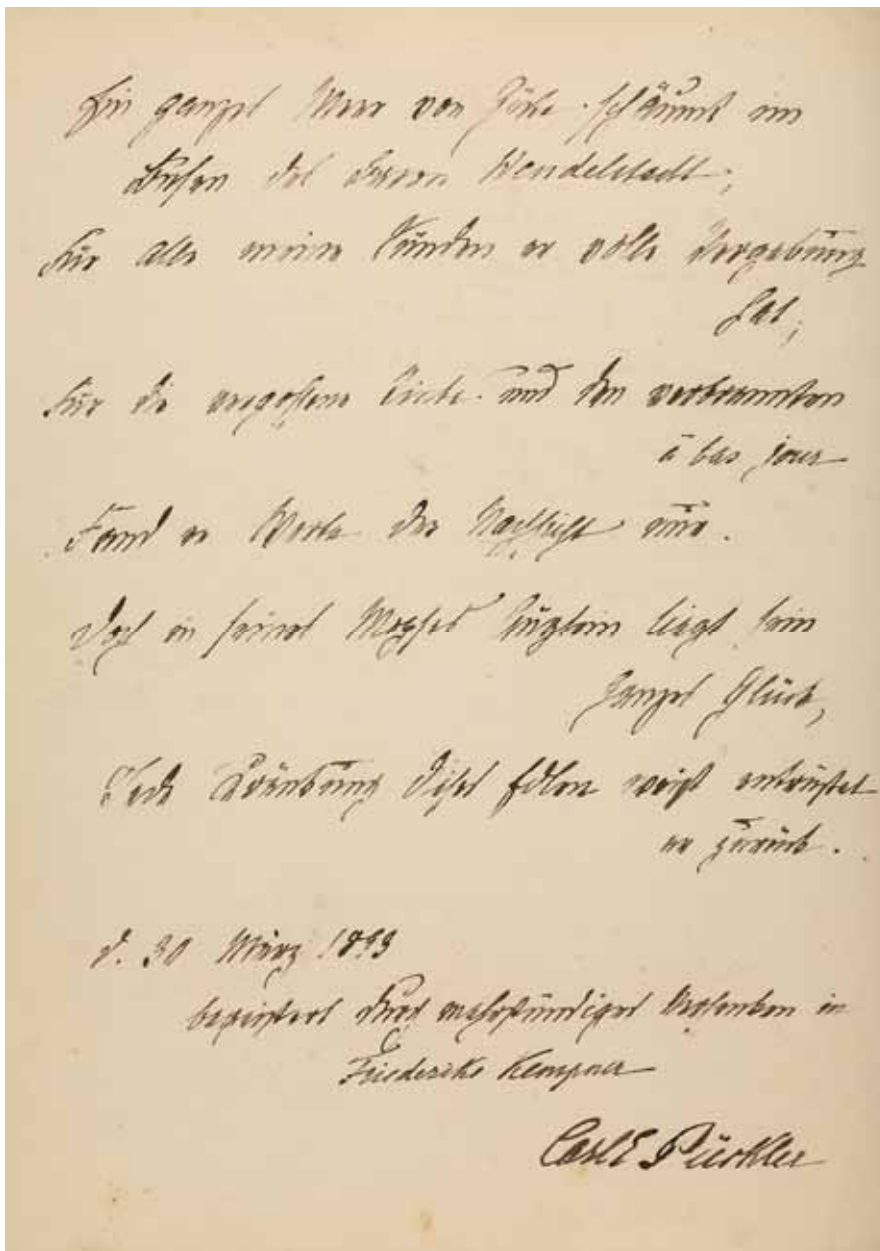 Ein ganzes Meer von Güte schäumt im
Busen des Herrn Wendelstadt;
Für alle meine Sünden er volle Vergebung
hat;
Für die vergossene Tinte und den verbrannten
à bas jour
Fand er Worte der Nachsicht nur.
Doch in seines Mopses Äuglein liegt sein
ganzes Glück,
Jede Kränkung dieses Edlen weist entrüstet
er zurück.
d. 30 März 1893
begeistert durch mehrstündiges Versenken in
Friederike Kempner
Carl E Pückler